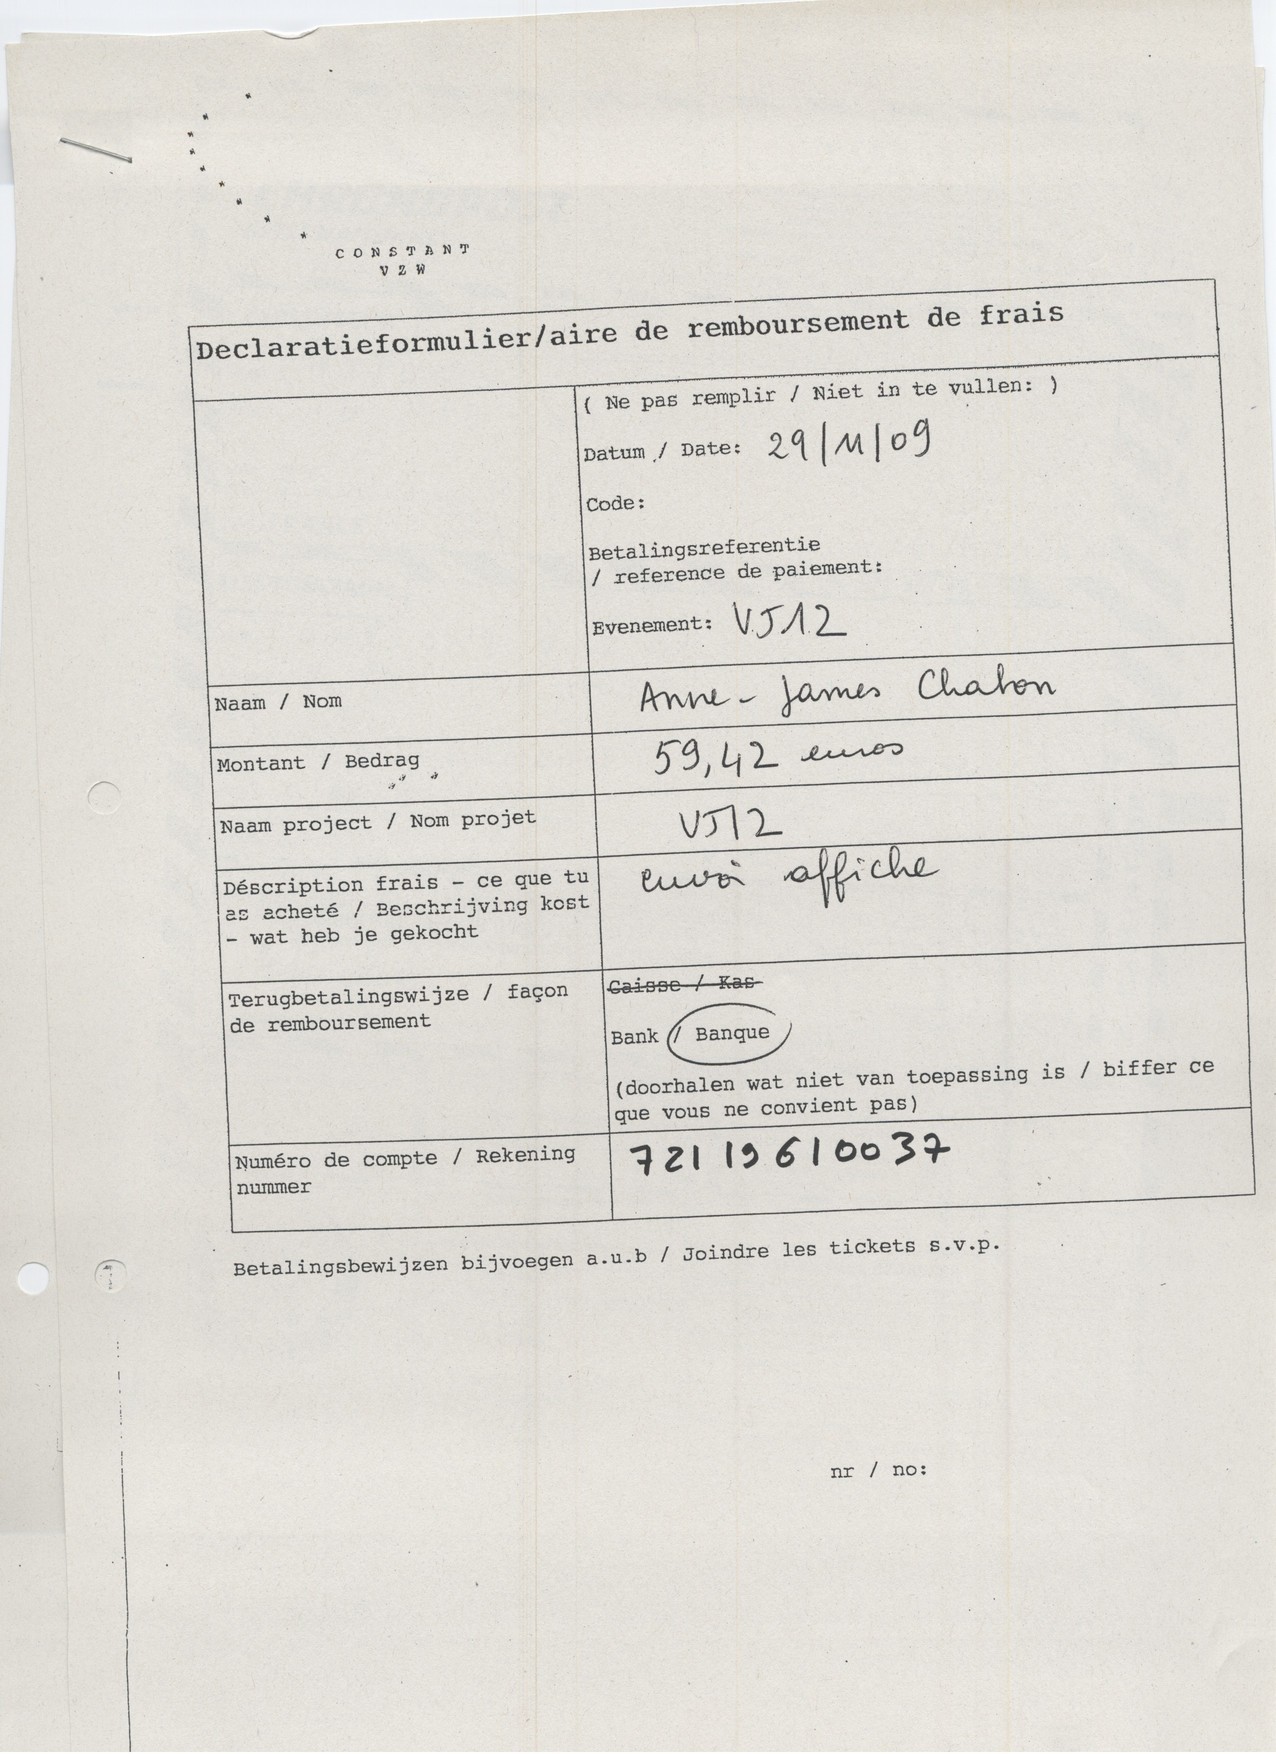 CONSTANT
VZW
Declaratieformulier/aire de remboursement de frais
( Ne pas remplir / Niet in te vullen: )
Datum / Date: 29/11/09
Code:
Betalingsreferentie
/ reference de paiement:
Evenement: VJ12
Naam / Nom
Anne-James Chaton
Montant / Bedrag
59,42 euros
Naam project / Nom projet
VJ12
Déscription frais - ce que tu
as acheté / Beschrijving kost
- wat heb je gekocht
envoi affiche
Terugbetalingswijze / façon
de remboursement
Caisse / Kas
Bank / Banque
(doorhalen wat niet van toepassing is / biffer ce
que vous ne convient pas)
Numéro de compte / Rekening
nummer
721 19610037
Betalingsbewijzen bijvoegen a.u.b / Joindre les tickets s.v.p.
nr / no: